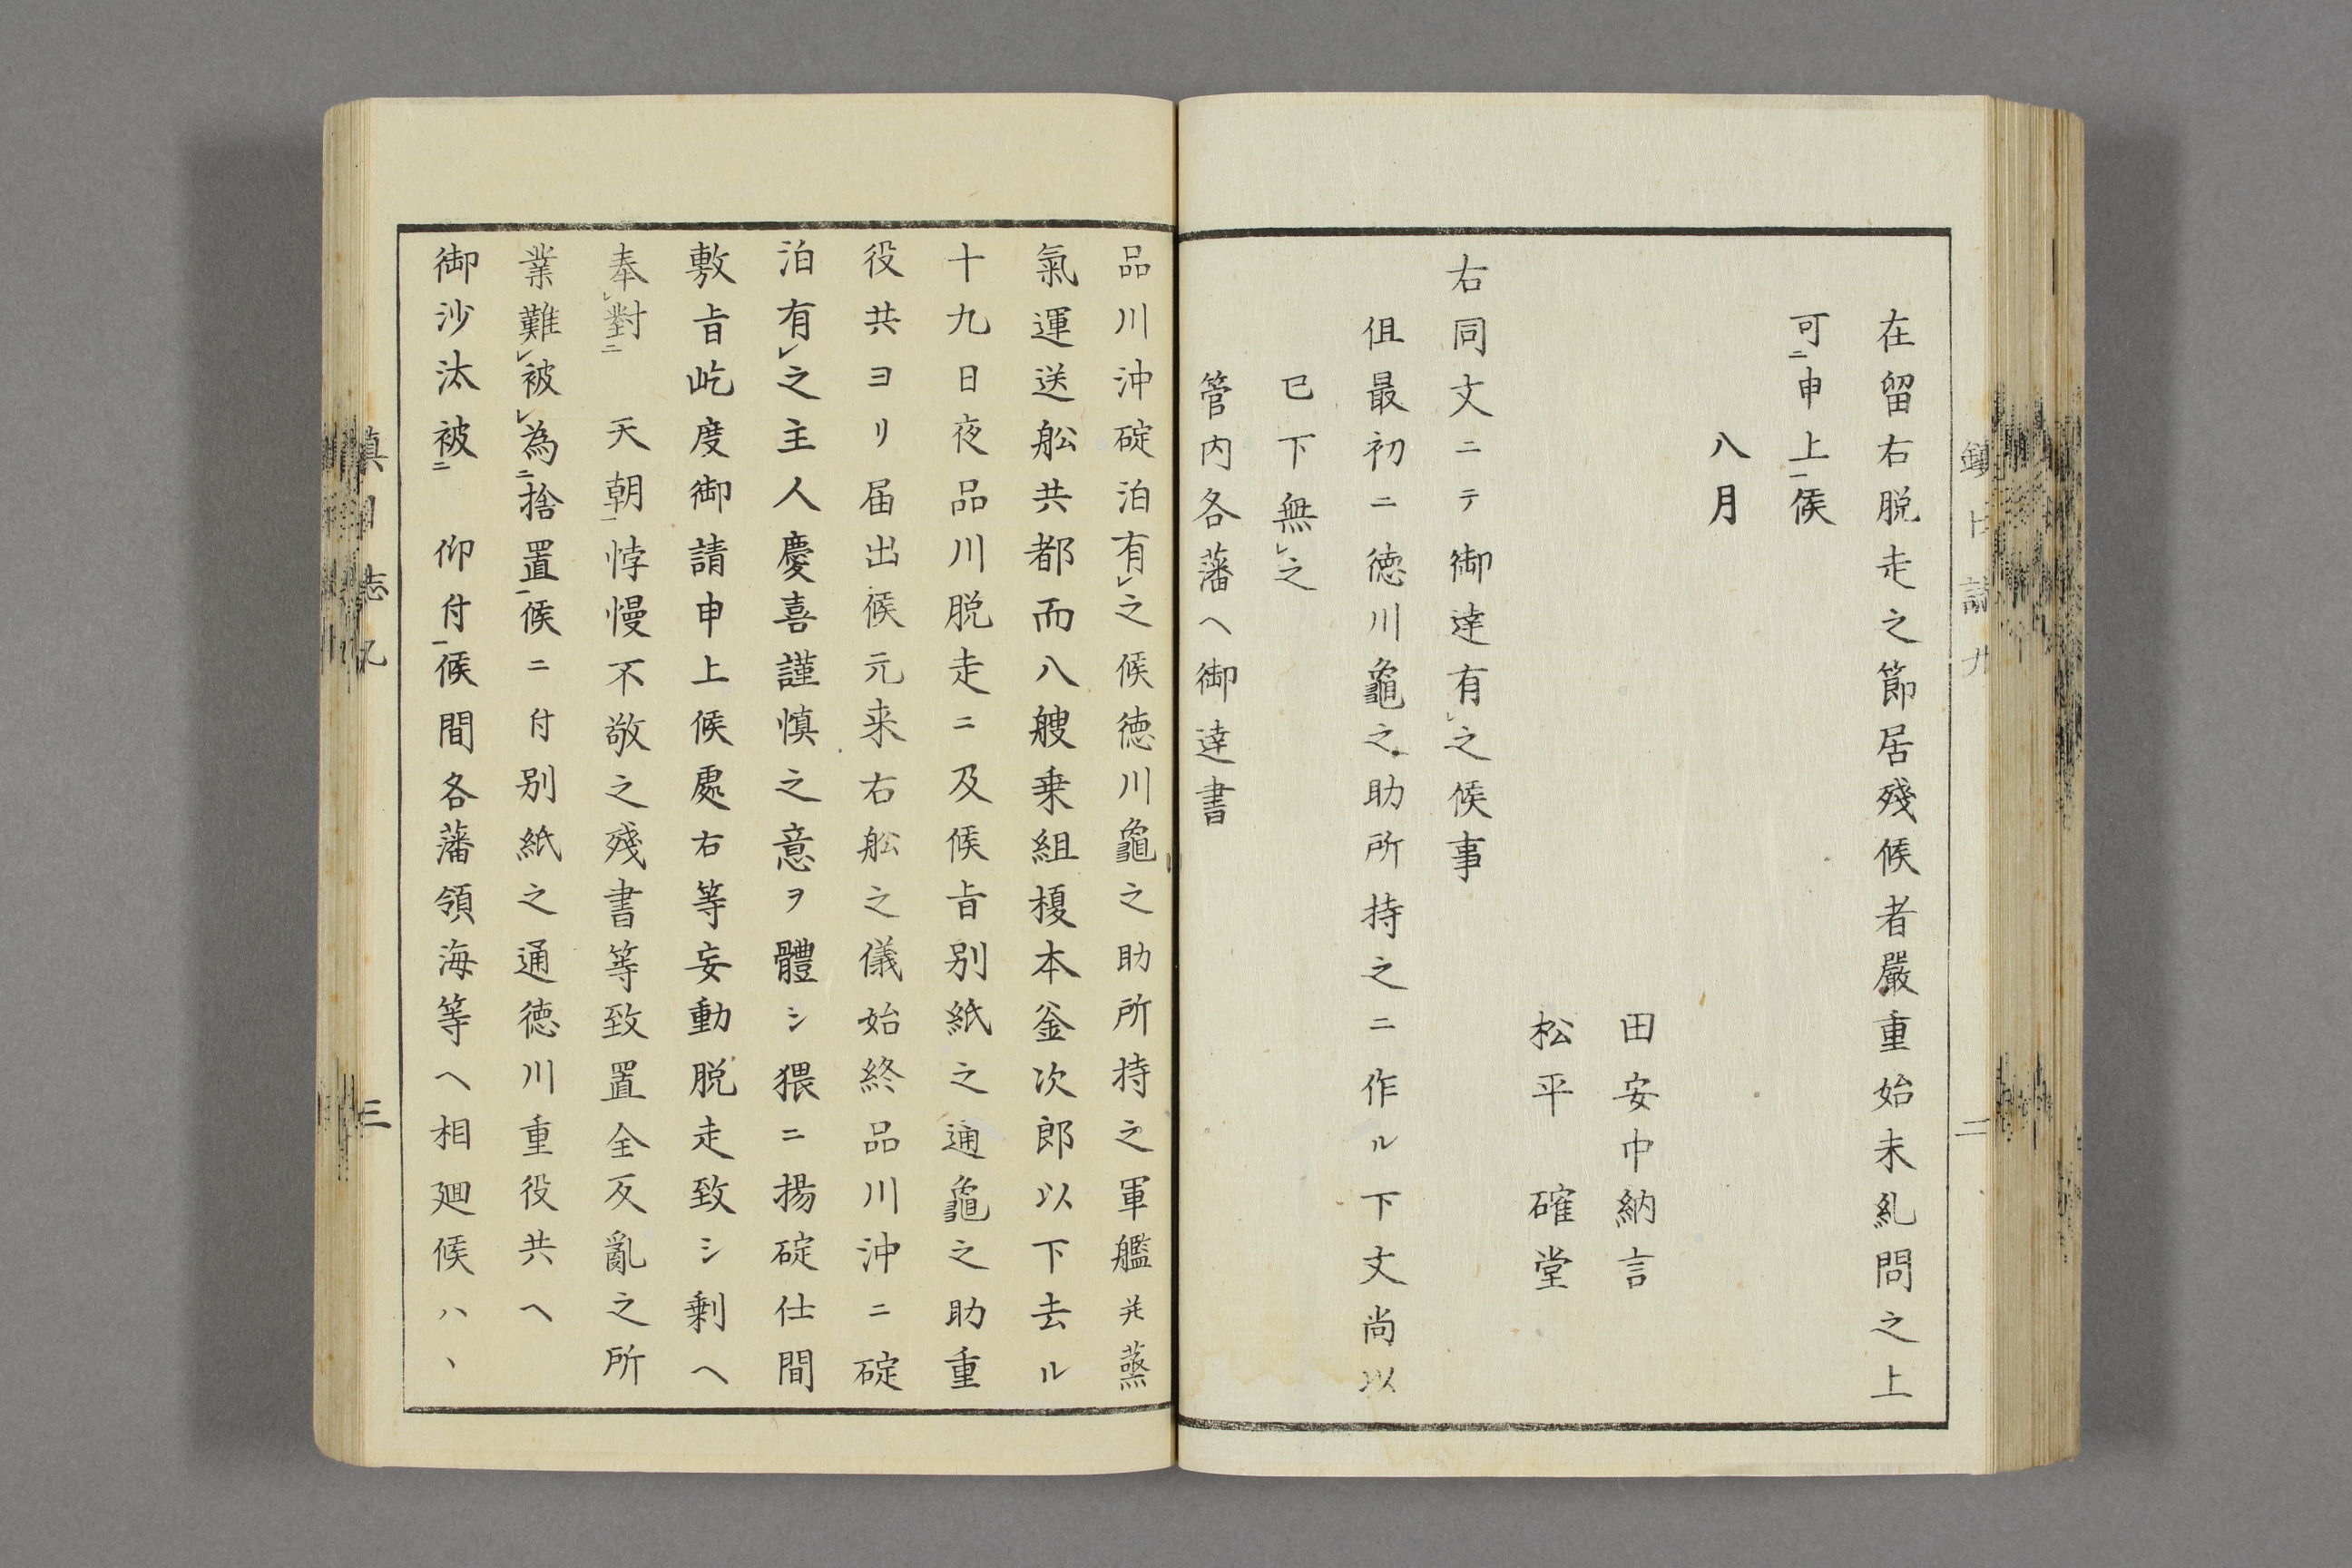 在留右脱走之節居殘候者嚴重始末糺問之上
可ニ申上一候
八月
田安中納言
松平　確堂
右同文ニテ御達有レ之候事
但最初ニ徳川龜之助所持之ニ作ル下文尚以
已下無レ之
管内各藩ヘ御達書
二
品川沖碇泊有レ之候徳川龜之助所持之軍艦并蒸
氣運送舩共都而八艘乗組榎本釜次郎以下去ル
十九日夜品川脱走ニ及候旨別紙之通龜之助重
役共ヨリ届出候元来右舩之儀始終品川沖ニ碇
泊有レ之主人慶喜謹慎之意ヲ體シ猥ニ揚碇仕間
敷旨屹度御請申上候處右等妄動脱走致シ剰ヘ
奉レ對ニ　天朝一悖慢不敬之殘書等致置全反亂之所
業難レ被レ為ニ捨置一候ニ付別紙之通徳川重役共ヘ
御沙汰被ニ　仰付一候間各藩領海等ヘ相廻候ハヽ
三